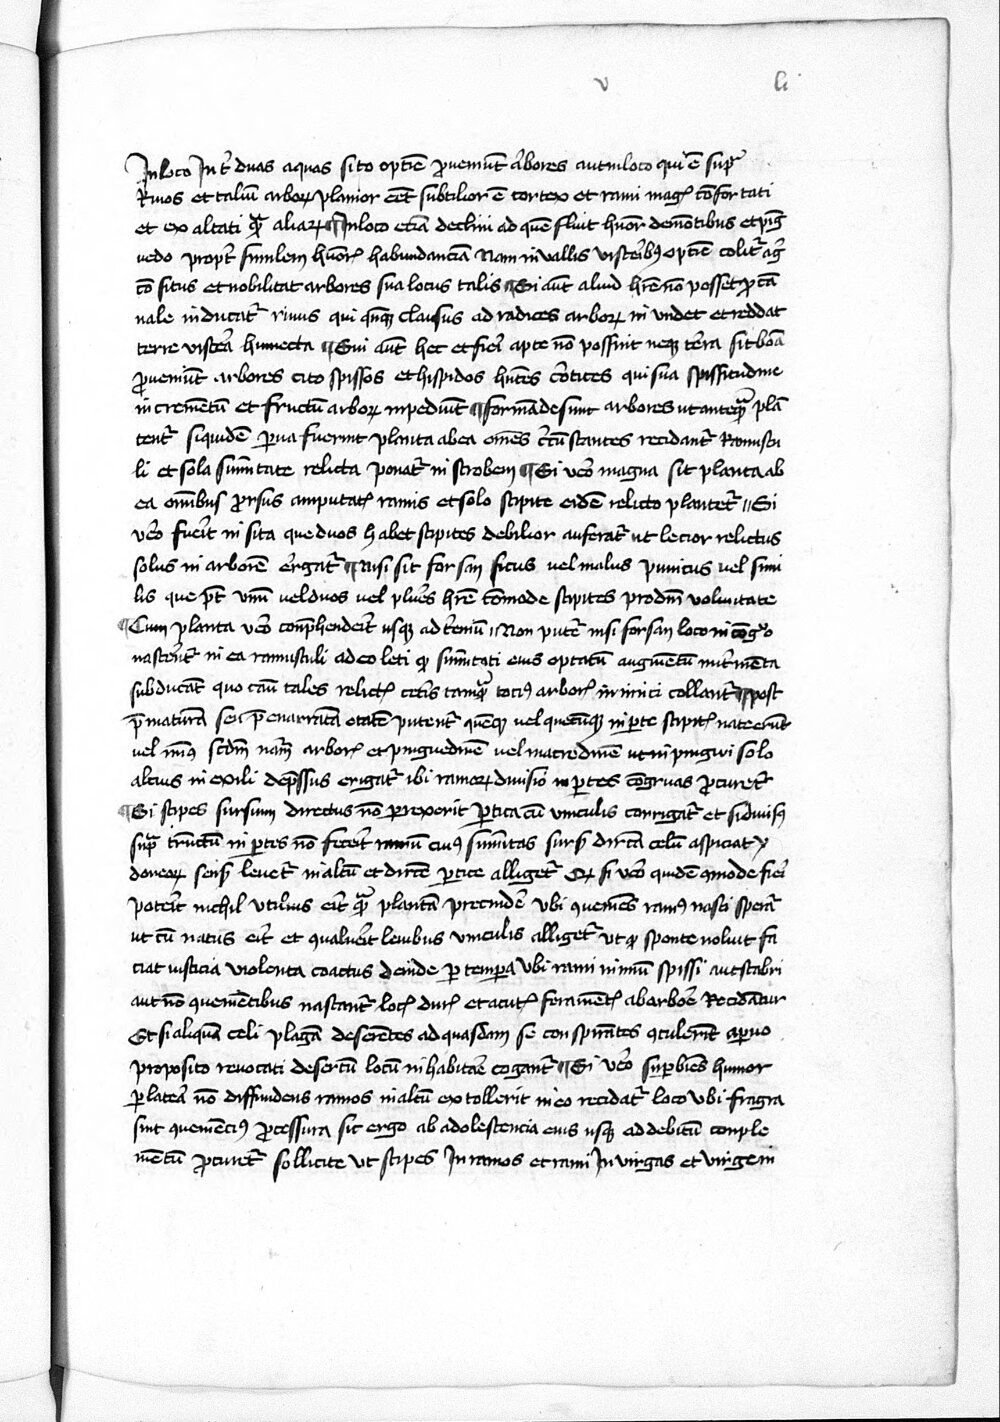 v li
In loco Int̄ duas aquas sito optīe ꝓueniūt arbores aut in loco qui ē supͬ
Riuos et taliū arborꝝ planior eēt subtilior ē cortex et rami magꝭ cōfortati
et exaltati qͣꝫ aliarꝝ ¶ In loco etiā decliui ad quē fluit humor de mōtibus et pīg
uedo propt̄ similem humorꝭ habundanciā Nam in vallis visceribꝰ optīe colitͬ agͬ
cō situs et nobilitat arbores sua locus talis ¶ Si aūt aliud hr̄e nō posset ꝑ cā
nale inducatͬ riuus qui qn̄qꝫ clausus ad radices arborꝝ in vndet et reddat
terre viscera humecta ¶ Sui aūt hec et fieri apte nō possint neqꝫ terra sit bōa
ꝓueniūt arbores cito spissos et hispidos hn̄tes cortices qui sua spissitudine
incremētū et fructū arborꝝ inpediūt ¶ formāde sunt arbores ut anteqͣꝫ plā
tentͬ siquidē ꝑua fuerint planta ab ea om̄es cͬcūstantes recidantͬ Ramuscu
li et sola sūmitate relicta ponatͬ in scrobem ¶ Si uero magna sit planta ab
ea om̄ibus ꝓrsus amputatꝭ ramis et solo stipite eidē relicto plantetͬ ¶ Si
uero fuerit in sita que duos habet stipites debilior auferatͬ ut lecior relictus
solus in arborē ergatͬ ¶ Nisi sit forsan ficus vel malus punicus vel simi
lis que pt̄ vnū vel duos vel plures hr̄e cōmode stipites prodm̄ voluntate
¶ Cum planta uero conp̄henderit usqꝫ ad t̄miū ¶ Non putet nisi forsan loco incōgͦo
nascerēt in ea ramusculi adeo leti ꝙ sūmitati eius optatū augmētū
subducāt quo cām tales relictꝭ ceteris tamqͣꝫ tociꝰ arborꝭ inimici tollantͬ ¶ post
p̄maturā seu p̄enarratā etatē putentͬ
vel minꝰ scdm̄ nām arborꝭ et pinguedinē vel macredinē ut in pingui solo
alcius in exili dep̄ssus erigatͬ ibi ramorꝝ diuisio in ꝑtes cōgruas ꝓcuretͬ
¶ Si stipes sursum directus nō ꝑrexerit ꝑtica cū vinculis corrigatͬ et si diuisꝰ
supͣ trūctū in ꝑtes nō fecerit ramū cuiꝰ sūmitas surs̄ dirctā celū aspiciat
doneoꝝ sens̄ leuetͬ in altū et dircte ꝑtice alligetͬ Qꝫ si uero quidē amode fieri
poterit nichil vtilius erit qͣꝫ plantā precindē vbi queniēs ramꝰ nasci sperat̄
ut cū natus erit et qualuerit leuibus vinculis alligetͬ ut ꝙ sponte noluit fa
ciat iusticia violenta coactus deinde ꝑ tempora vbi rami nimiū spissi aut scabri
aut nō queniētibus nascantͬ locꝭ durꝭ et acutꝭ feramētꝭ ab arbore Recidātur
Et si aliquā celi plagā deserētes ad quasdam se conspirātes ꝯtulerīt a prauo
proposito reuocati desertū locū inhabitare cogantͬ ¶ Si uero supbiēs humor
ꝑ lateā nō diffundens ramos in altū extollerit in eo recidatͬ loco vbi fragra
sint queniēciꝰ ꝓcessura sit ergo ab adolescencia eius usqꝫ ad debitū conple
mētū ꝓcuretͬ sollicite vt stipes In ramos et rami In virgas et virge in